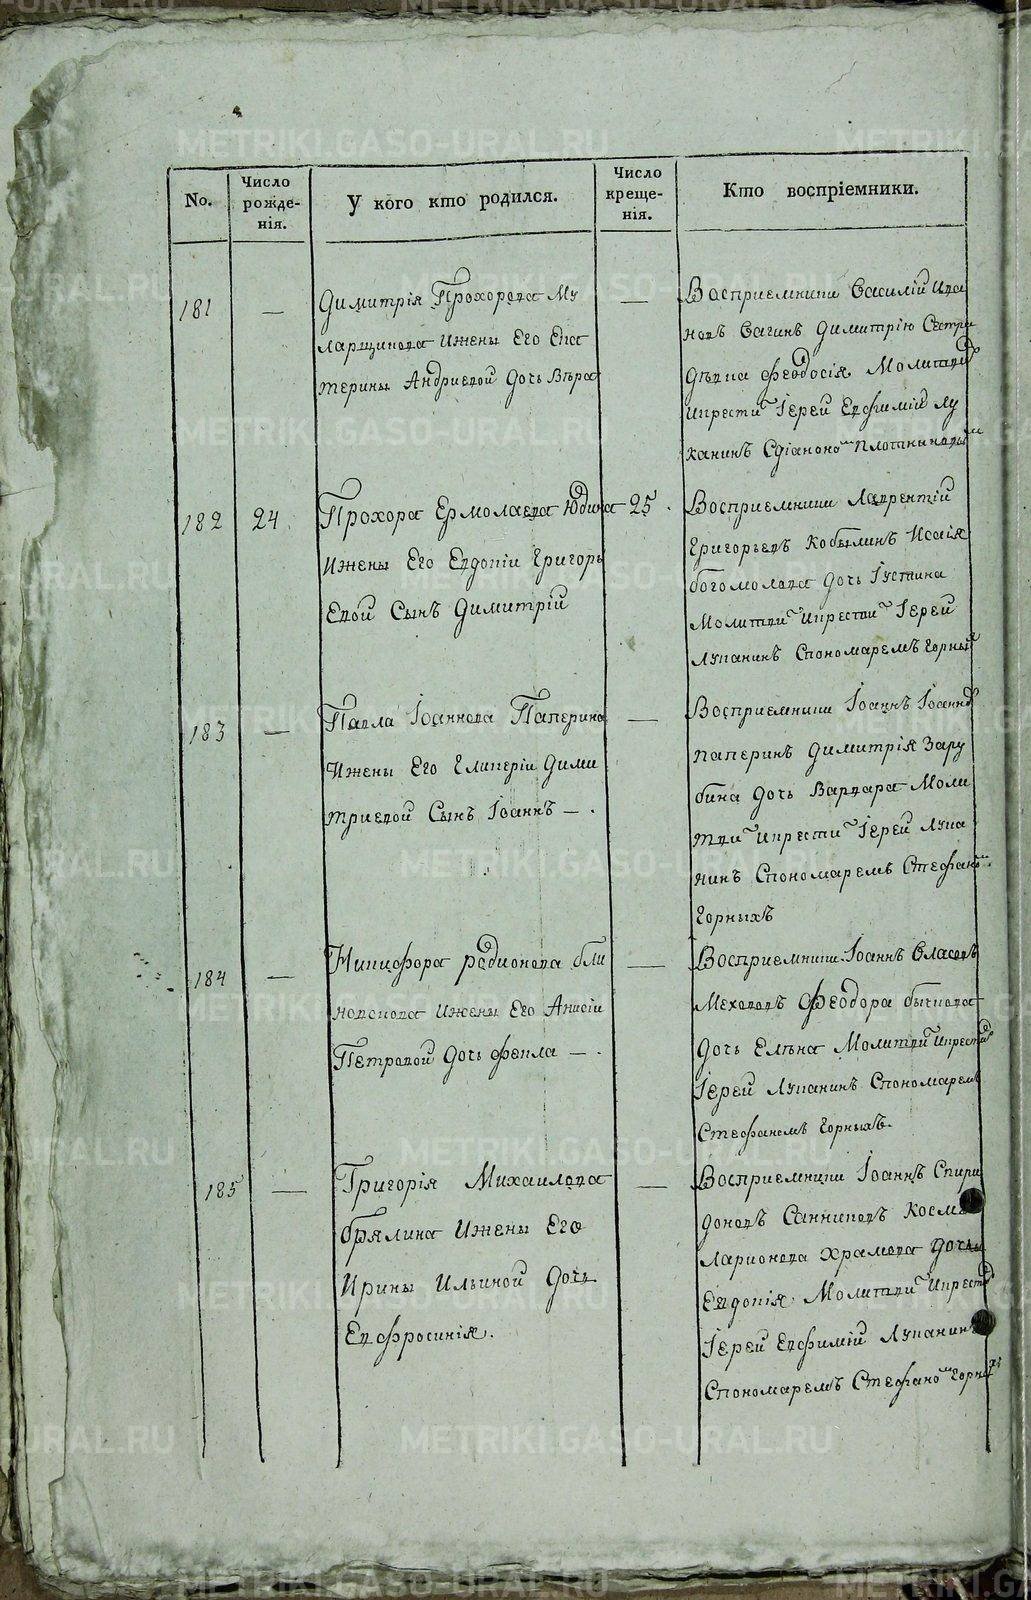 No.
Число рожде-нія.
У кого кто родился.
Число креще-нія.
Кто воспріемники.
181
—
Димитрія Прохорова Му
ларщикова Ижены Его Ека
терины Андриевой Дочь Вѣра
—
Восприемники Василій Ива
новъ Вагинъ Димитрію Сестра
Дѣвка Феодосія Молитви
икрести Іерей Евфимій Лу
канинъ Сдіаконо Плотниковы
182
24
Прохора Ермолаева Юдина
Ижены Его Евдокіи Григорь
Евой Сынъ Димитрій
25
Восприемники Лаврентій
Григорьевъ Кобылинъ Исаія
богомолова Дочь Іустина
Молитви икрестви Іерей
Луканинъ Спономаремъ Горны
183
—
Павла Іоаннова Паперина
Ижены Его Гликеріи Дими
триевой Сынъ Іоаннъ —.
—
Восприемники Іоаннъ Іоанно
паперинъ Димитрія Зару
бина Дочь Варвара Моли
тви икрести Іерей Лука
нинъ Спономаремъ Стефано
Горныхъ
184
—
Никифора родионова бли
новскова Ижены Его Анисіи
Петровой Дочь фекла —.
—
Восприемники Іоаннъ Власовъ
Меховъ Феодора бычкова
Дочь Елѣна Молитви икрести
Іерей Луканинъ Спономаремъ
Стефаномъ Горныхъ.
185
—
Григорія Михаилова
брялина Ижены Его
Ирины Ильиной Дочь
Евфросинія.
—
Восприемники Іоаннъ Спири
доновъ Санниковъ Косма
Ларионова храмова дочь
Евдокія. Молитви икрести
Іерей Евфимій Луканинъ
Спономаремъ Стефано Горны
METRIKI.GASO-URAL.RU